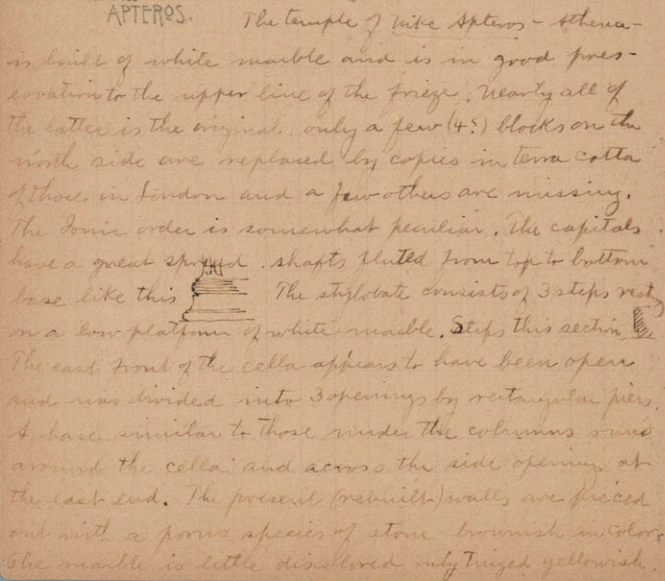 APTEROS. The temple of Nike Apteros - Athena -
is built of white marble and is in good pres-
ervation to the upper line of the frieze. Nearly all of
the latter is the original, only a few (4?) blocks on the
north side are replaced by copies in terra cotta
of those in London and a few others are missing.
The Ionic order is somewhat peculiar. The capitals
have a great spread. shafts fluted from top to bottom
base like this The stylobate consists of 3 steps rests
on a low platform of white marble. Steps this section
The east front of the cella appears to have been open
and was divided into 3 openings by rectangular piers.
A base similar to those under the columns runs
around the cella and across the side opening at
the east end. The present (rebuilt) walls are pieced
out with a porus species of stone brownish in color.
The marble is little discolored only tinged yellowish.